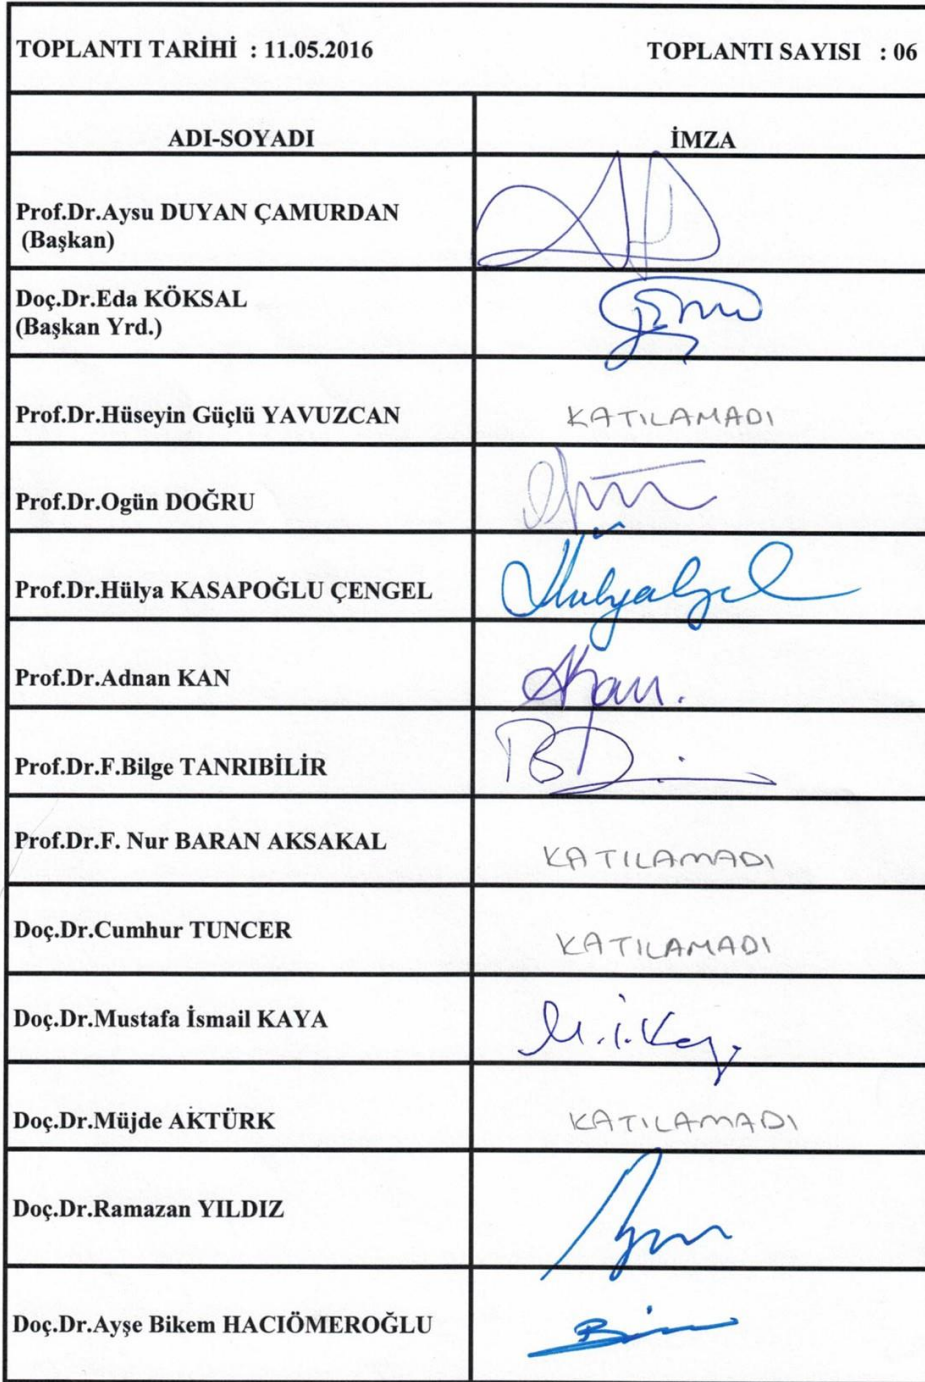 TOPLANTI TARİHİ : 11.05.2016 TOPLANTI SAYISI : 06
ADI-SOYADI İMZA
Prof.Dr.Aysu DUYAN ÇAMURDAN
(Başkan)
Doç.Dr.Eda KÖKSAL
(Başkan Yrd.)
Prof.Dr.Hüseyin Güçlü YAVUZCAN KATILAMADI
Prof.Dr.Ogün DOĞRU
Prof.Dr.Hülya KASAPOĞLU ÇENGEL
Prof.Dr.Adnan KAN
Prof.Dr.F.Bilge TANRIBİLİR
Prof.Dr.F. Nur BARAN AKSAKAL KATILAMADI
Doç.Dr.Cumhur TUNCER KATILAMADI
Doç.Dr.Mustafa İsmail KAYA
Doç.Dr.Müjde AKTÜRK KATILAMADI
Doç.Dr.Ramazan YILDIZ
Doç.Dr.Ayşe Bikem HACIÖMEROĞLU